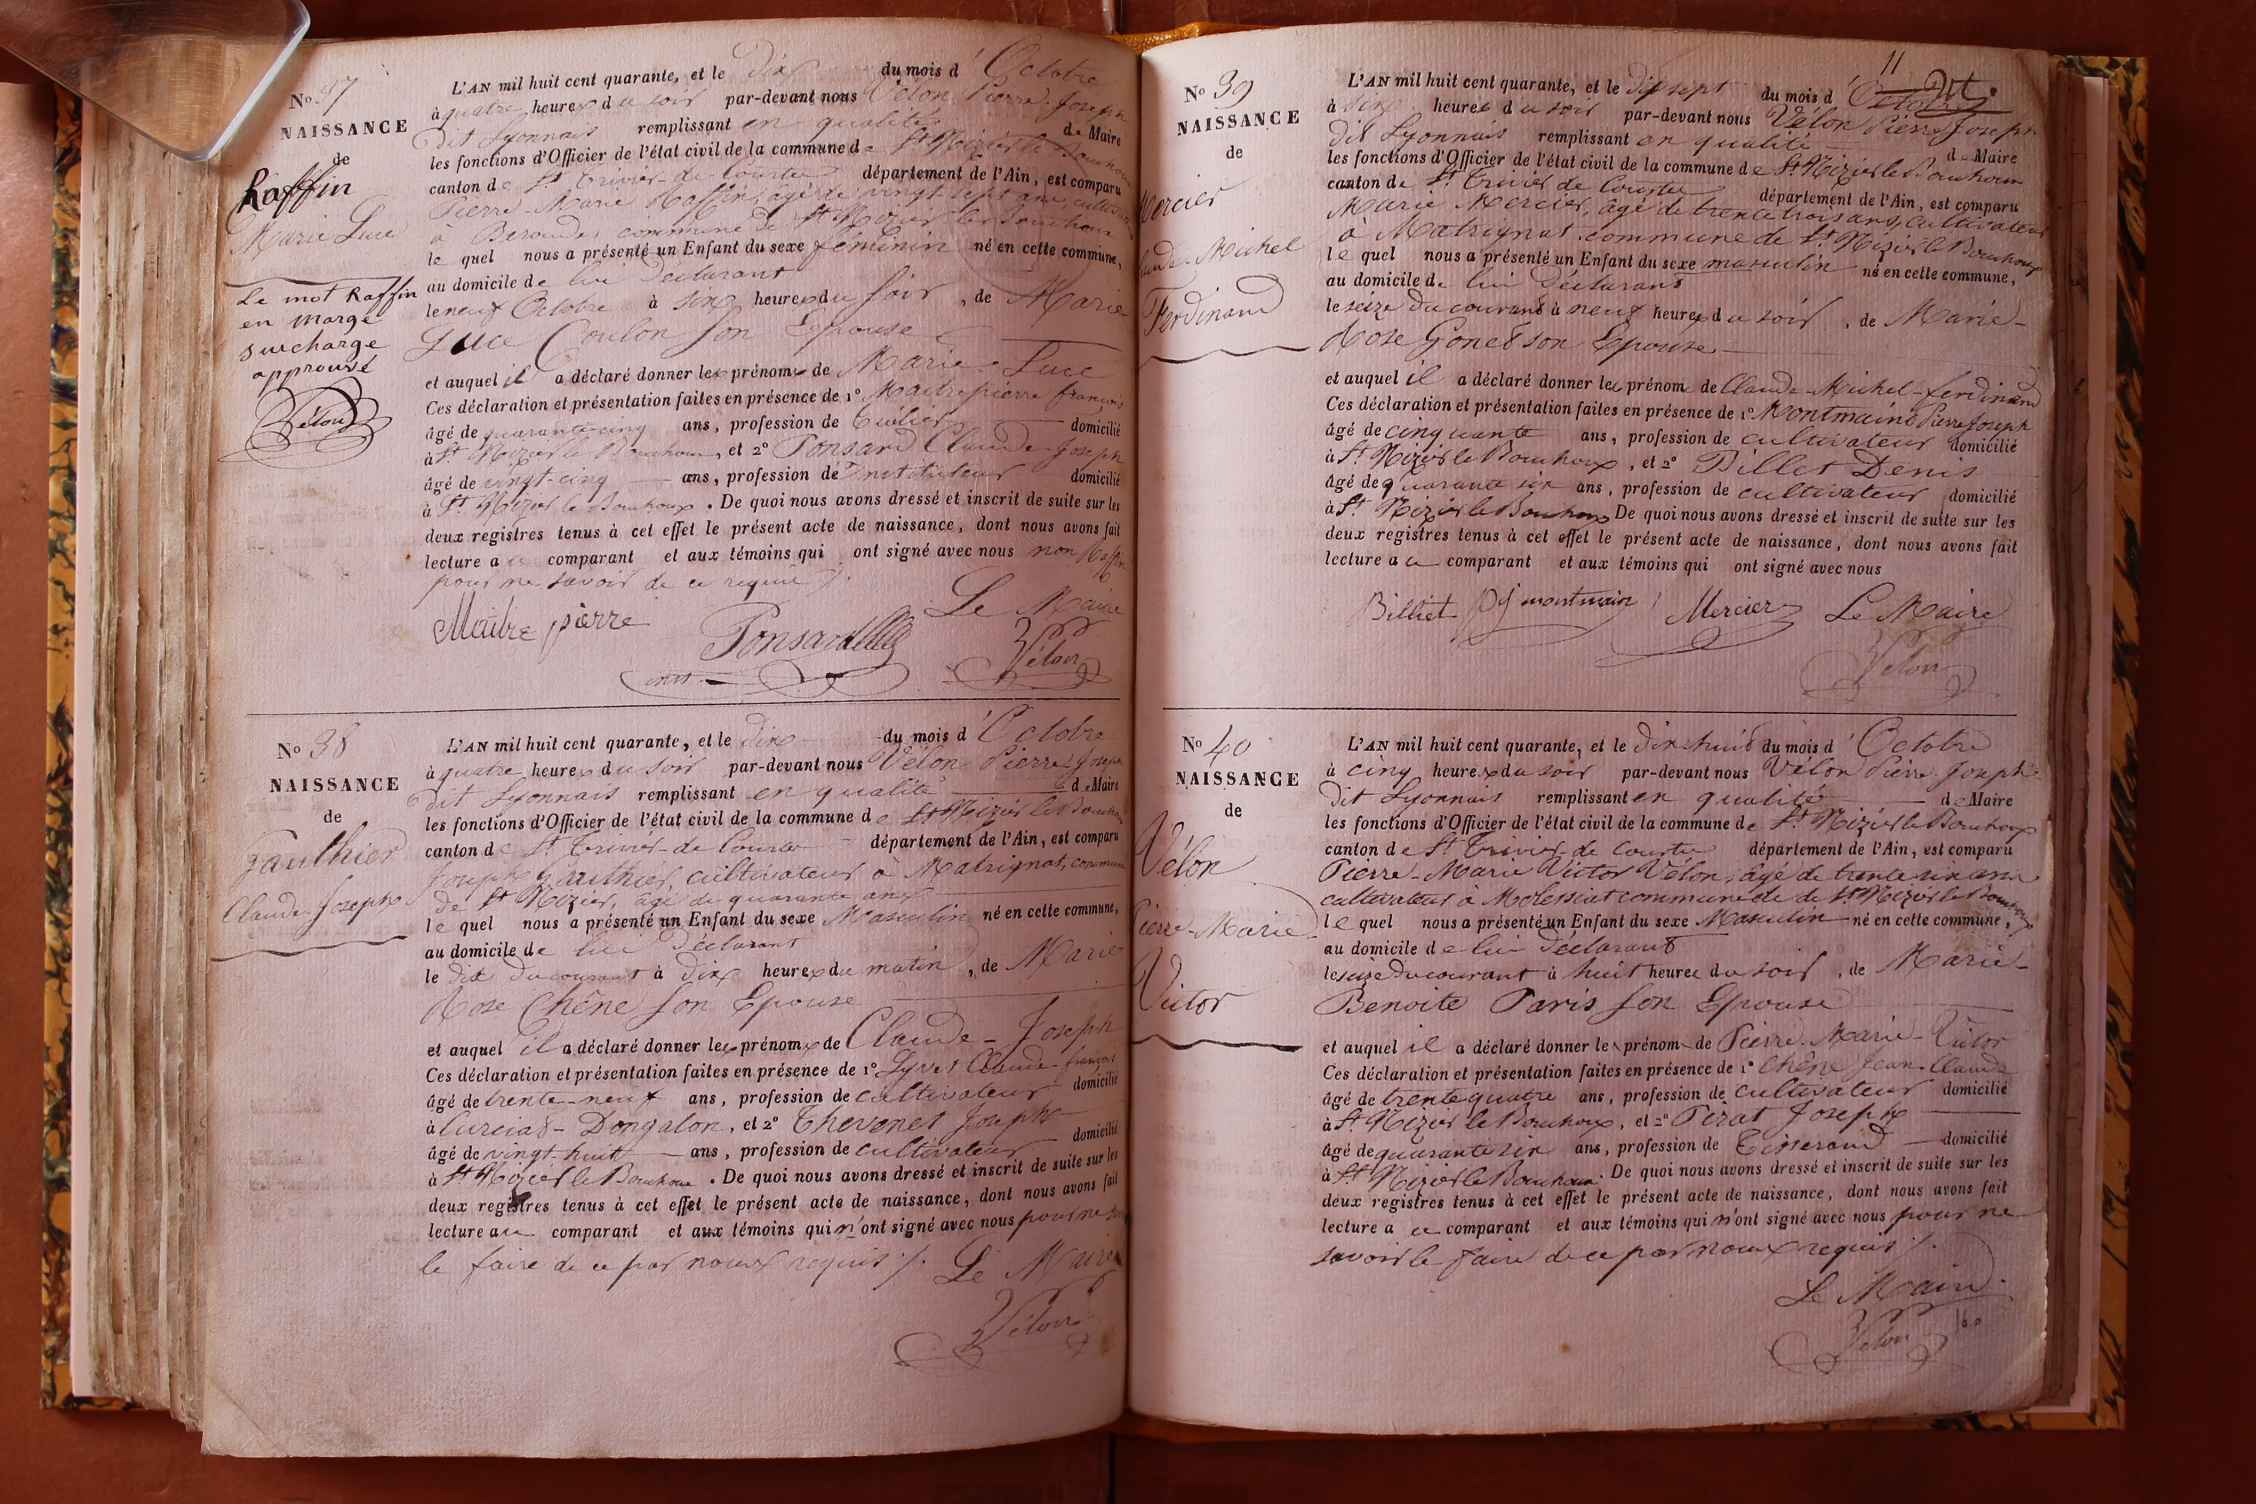 No 37
NAISSANCE
de
Raffin
Marie Luce
Le mot Raffin
en marge
surchargé
approuvé
Vélon
L'AN mil huit cent quarante, et le dix du mois d'Octobre
à quatre heures du soir par-devant nous Vélon Pierre Joseph
dit Lyonnais remplissant en qualité de Maire
les fonctions d'Officier de l'état civil de la commune de St Nizier le Bouhoux
canton de St Trivier de Courtes département de l'Ain, est comparu
Pierre-Marie Raffin, âgé de vingt-sept ans, cultivateur
à commune de St Nizier le Bouchoux
le quel nous a présenté un Enfant du sexe féminin né en cette commune,
au domicile de lui déclarant
le neuf Octobre à six heures du soir, de Marie
Luce Coulon son Epouse
et auquel il a déclaré donner les prénoms de Marie-Luce
Ces déclaration et présentation faites en présence de 1o Maitrepierre françois
âgé de quarante cinq ans, profession de domicilié
à St Nizier le Bouchoux, et 2o Ponsard Claude-Joseph
âgé de vingt-cinq ans, profession de Instituteur domicilié
à St Nizier le Bouchoux. De quoi nous avons dressé et inscrit de suite sur les
deux registres tenus à cet effet le présent acte de naissance, dont nous avons fait
lecture au comparant et aux témoins qui ont signé avec nous non Raffin
pour ne savoir de ce requis ./.
Maitre pierre Ponsard Le Maire
Vélon
No 38
NAISSANCE
de
Gauthier
Claude-Joseph
L'AN mil huit cent quarante, et le dix du mois d'Octobre
à quatre heures du soir par-devant nous Vélon Pierre Joseph
dit Lyonnais remplissant en qualité de Maire
les fonctions d'Officier de l'état civil de la commune de St Nizier le Bouchoux
canton de St Trivier-de Courtes département de l'Ain, est comparu
Joseph Gauthier, cultivateur à Matrignat, commune
de St Nizier, âgé de quarante ans
le quel nous a présenté un Enfant du sexe Masculin né en cette commune,
au domicile de lui déclarant
le dix du courant à dix heures du matin, de Marie
Rose Chêne son Epouse
et auquel il a déclaré donner les prénoms de Claude-Joseph
Ces déclaration et présentation faites en présence de 1o Lyvet Claude-françois
âgé de trente-neuf ans, profession de cultivateur domicilié
à Curciat-Dongalon, et 2o Thevenet Joseph
âgé de vingt-huit ans, profession de cultivateur domicilié
à St Nizier le Bouchoux. De quoi nous avons dressé et inscrit de suite sur les
deux registres tenus à cet effet le présent acte de naissance, dont nous avons fait
lecture au comparant et aux témoins qui n'ont signé avec nous pour ne
le faire de ce par nous requis ./. Le Maire
Vélon
11
No 39
NAISSANCE
de
Mercier
Claude-Michel
Ferdinand
L'AN mil huit cent quarante, et le dix sept du mois d'Octobre
à six heures du soir par-devant nous Vélon Pierre Joseph
dit Lyonnais remplissant en qualité de Maire
les fonctions d'Officier de l'état civil de la commune de St Nizier le Bouchoux
canton de St Trivier de Courtes département de l'Ain, est comparu
Marie Mercier, âgé de trente trois ans, cultivateur
à Matrignat commune de St Nizier le Bouchoux
le quel nous a présenté un Enfant du sexe masculin né en cette commune,
au domicile de lui déclarant
le seize du courant à neuf heures du soir, de Marie-
Rose Gonet son Epouse
et auquel il a déclaré donner les prénom de Claude-Michel-ferdinand
Ces déclaration et présentation faites en présence de 1o Montmain Pierre Joseph
âgé de cinquante ans, profession de cultivateur domicilié
à St Nizier le Bouchoux, et 2o Billet Denis
âgé de quarante six ans, profession de cultivateur domicilié
à St Nizier le Bouchoux De quoi nous avons dressé et inscrit de suite sur les
deux registres tenus à cet effet le présent acte de naissance, dont nous avons fait
lecture a ce comparant et aux témoins qui ont signé avec nous
Billiet pj montmain Mercier Le Maire
Vélon
No 40
NAISSANCE
de
Vélon
Pierre-Marie
Victor
L'AN mil huit cent quarante, et le dix huit du mois d'Octobre
à cinq heures du soir par-devant nous Vélon Pierre Joseph
dit Lyonnais remplissant en qualité de Maire
les fonctions d'Officier de l'état civil de la commune de St Nizier le Bouchoux
canton de St Trivier-de Courtes département de l'Ain, est comparu
Pierre-Marie Victor Vélon, âgé de trente six ans
cultivateur à Molessiat commune de de St Nizier le Bouchoux
le quel nous a présenté un Enfant du sexe Masculin né en cette commune,
au domicile de lui déclarant
le seize du courant à huit heures du soir, de Marie-
Benoite Paris son Epouse
et auquel il a déclaré donner les prénoms de Pierre-Marie-Victor
Ces déclaration et présentation faites en présence de 1o Chêne Jean-Claude
âgé de trente quatre ans, profession de cultivateur domicilié
à St Nizier le Bouchoux, et 2o Pirat Joseph
âgé de quarante six ans, profession de Tisserand domicilié
à St Nizier le Bouchoux. De quoi nous avons dressé et inscrit de suite sur les
deux registres tenus à cet effet le présent acte de naissance, dont nous avons fait
lecture a ce comparant et aux témoins qui n'ont signé avec nous pour ne
savoir le faire de ce par nous requis ./.
Le Maire
Vélon